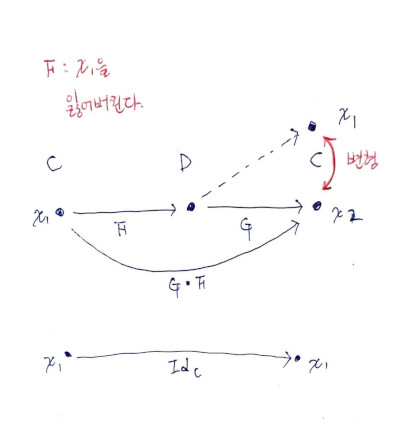 F : x₁을
잃어버린다.
x₁
C D C 변형
x₁ F G x₂
G • F
x₁ Id_C x₁